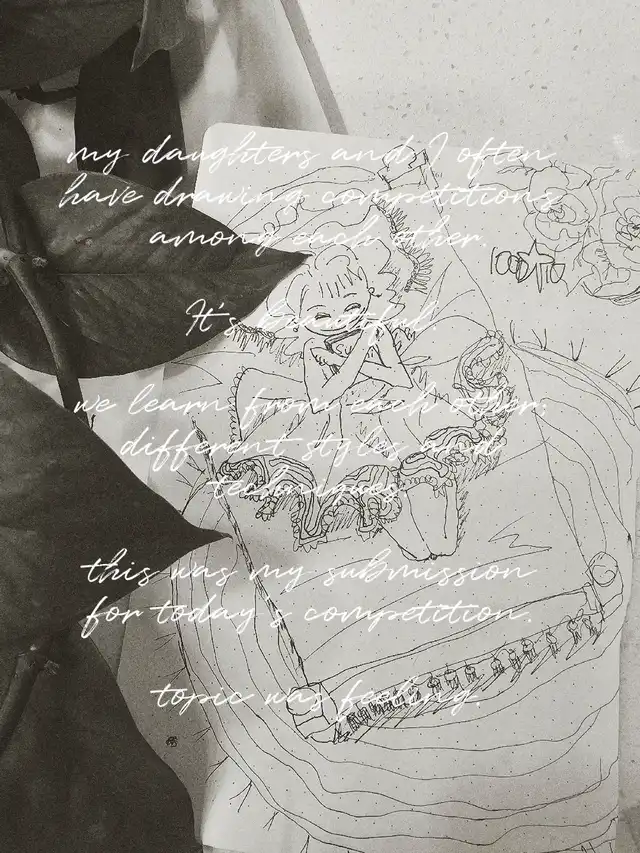 my daughters and I often
have drawing competitions
among each other.
It's beautiful.
we learn from each other:
different styles and
techniques.
this was my submission
for today's competition.
topic was feeling.